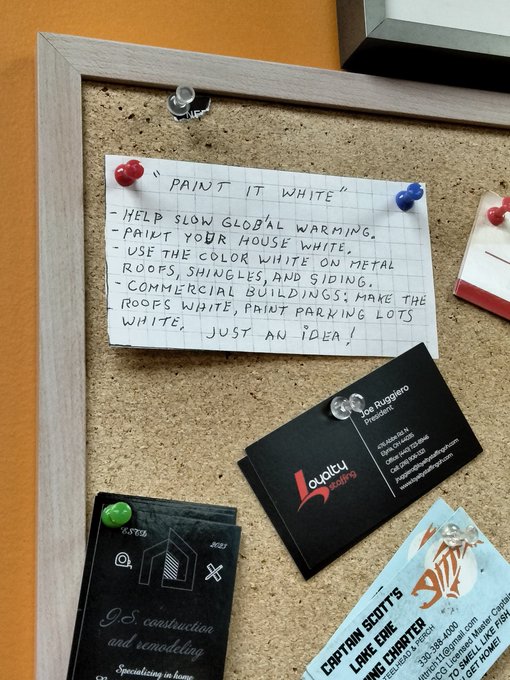 "PAINT IT WHITE"
- HELP SLOW GLOBAL WARMING.
- PAINT YOUR HOUSE WHITE.
- USE THE COLOR WHITE ON METAL
ROOFS, SHINGLES, AND SIDING.
- COMMERCIAL BUILDINGS: MAKE THE
ROOFS WHITE, PAINT PARKING LOTS
WHITE, JUST AN IDEA!
Joe Ruggiero
President
Elyria, OH 44035
www.loyaltystaffingoh.com
Loyalty
staffing
ESTD
2023
J.S. construction
and remodeling
Specializing in home
CAPTAIN SCOTT'S
LAKE ERIE
ING CHARTER
STEELHEAD & PERCH
330-388-4000
11@gmail.com
CG Licensed Master Captain
TO SMELL LIKE FISH
GET HOME!